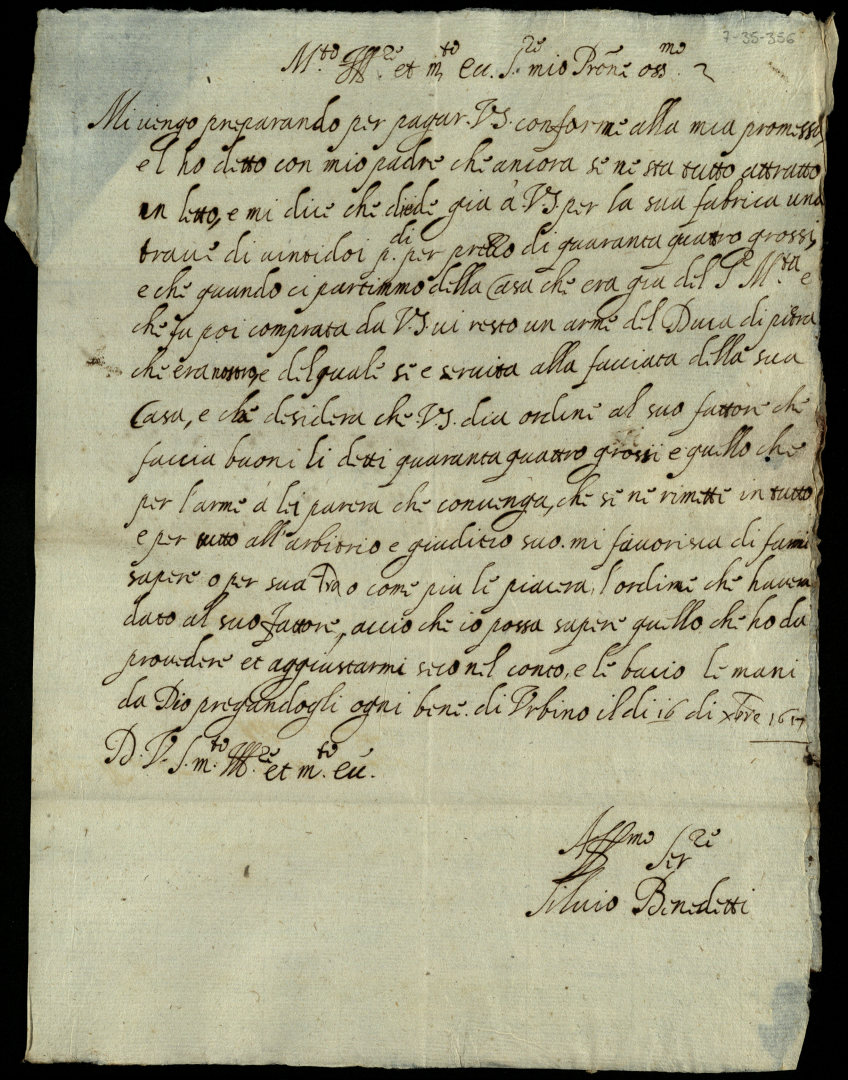 7-35-356
M.to Ill.re et m.to ecc. S.re mio Prōne oss.mo
Mi uengo preparando per pagar. V.S. conforme alla mia promessa,
e l ho detto con mio padre che ancora se ne sta tutto attratto
in letto, e mi dice che diede gia à V.S. per la sua fabrica una
traue di uintidoi p.di per prezzo di quaranta quatro grossi,
e che quando ci partimmo della Casa che era gia del S.r M.ta e
che fu poi comprata da V.S. ui resto un arme del Duca di pietra
che era nostro, e del quale se e seruita alla facciata della sua
Casa, e che desidera che V.S. dia ordine al suo fattore che
faccia buoni li detti quaranta quattro grossi e quello che
per l'arme à lei parera che conuenga, che se ne rimette in tutto
e per tutto all'arbitrio e giuditio suo. mi fauorisca di farmi
sapere o per sua o come piu le piacera, l'ordine che hauera
dato al suo fattore, accio che io possa sapere quello che ho da
prouedere et aggiustarmi seco nel conto, e le bacio le mani
da Dio pregandogli ogni bene. di Vrbino il di 16 di xbre 1617
D. V. S. m.to Ill.re et m.to ecc.
Aff.mo Ser.re
Siluio Benedetti